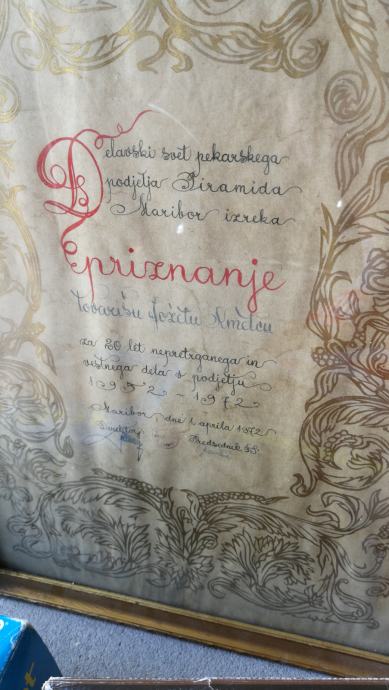 Delavski svet pekarskega
podjetja Piramida
Maribor izreka
priznanje
tovarišu Jožetu
za 20 let nepretrganega in
vestnega dela v podjetju
1952 - 1972
Maribor, dne 1 aprila 1972
Direktor: Predsednik DS: